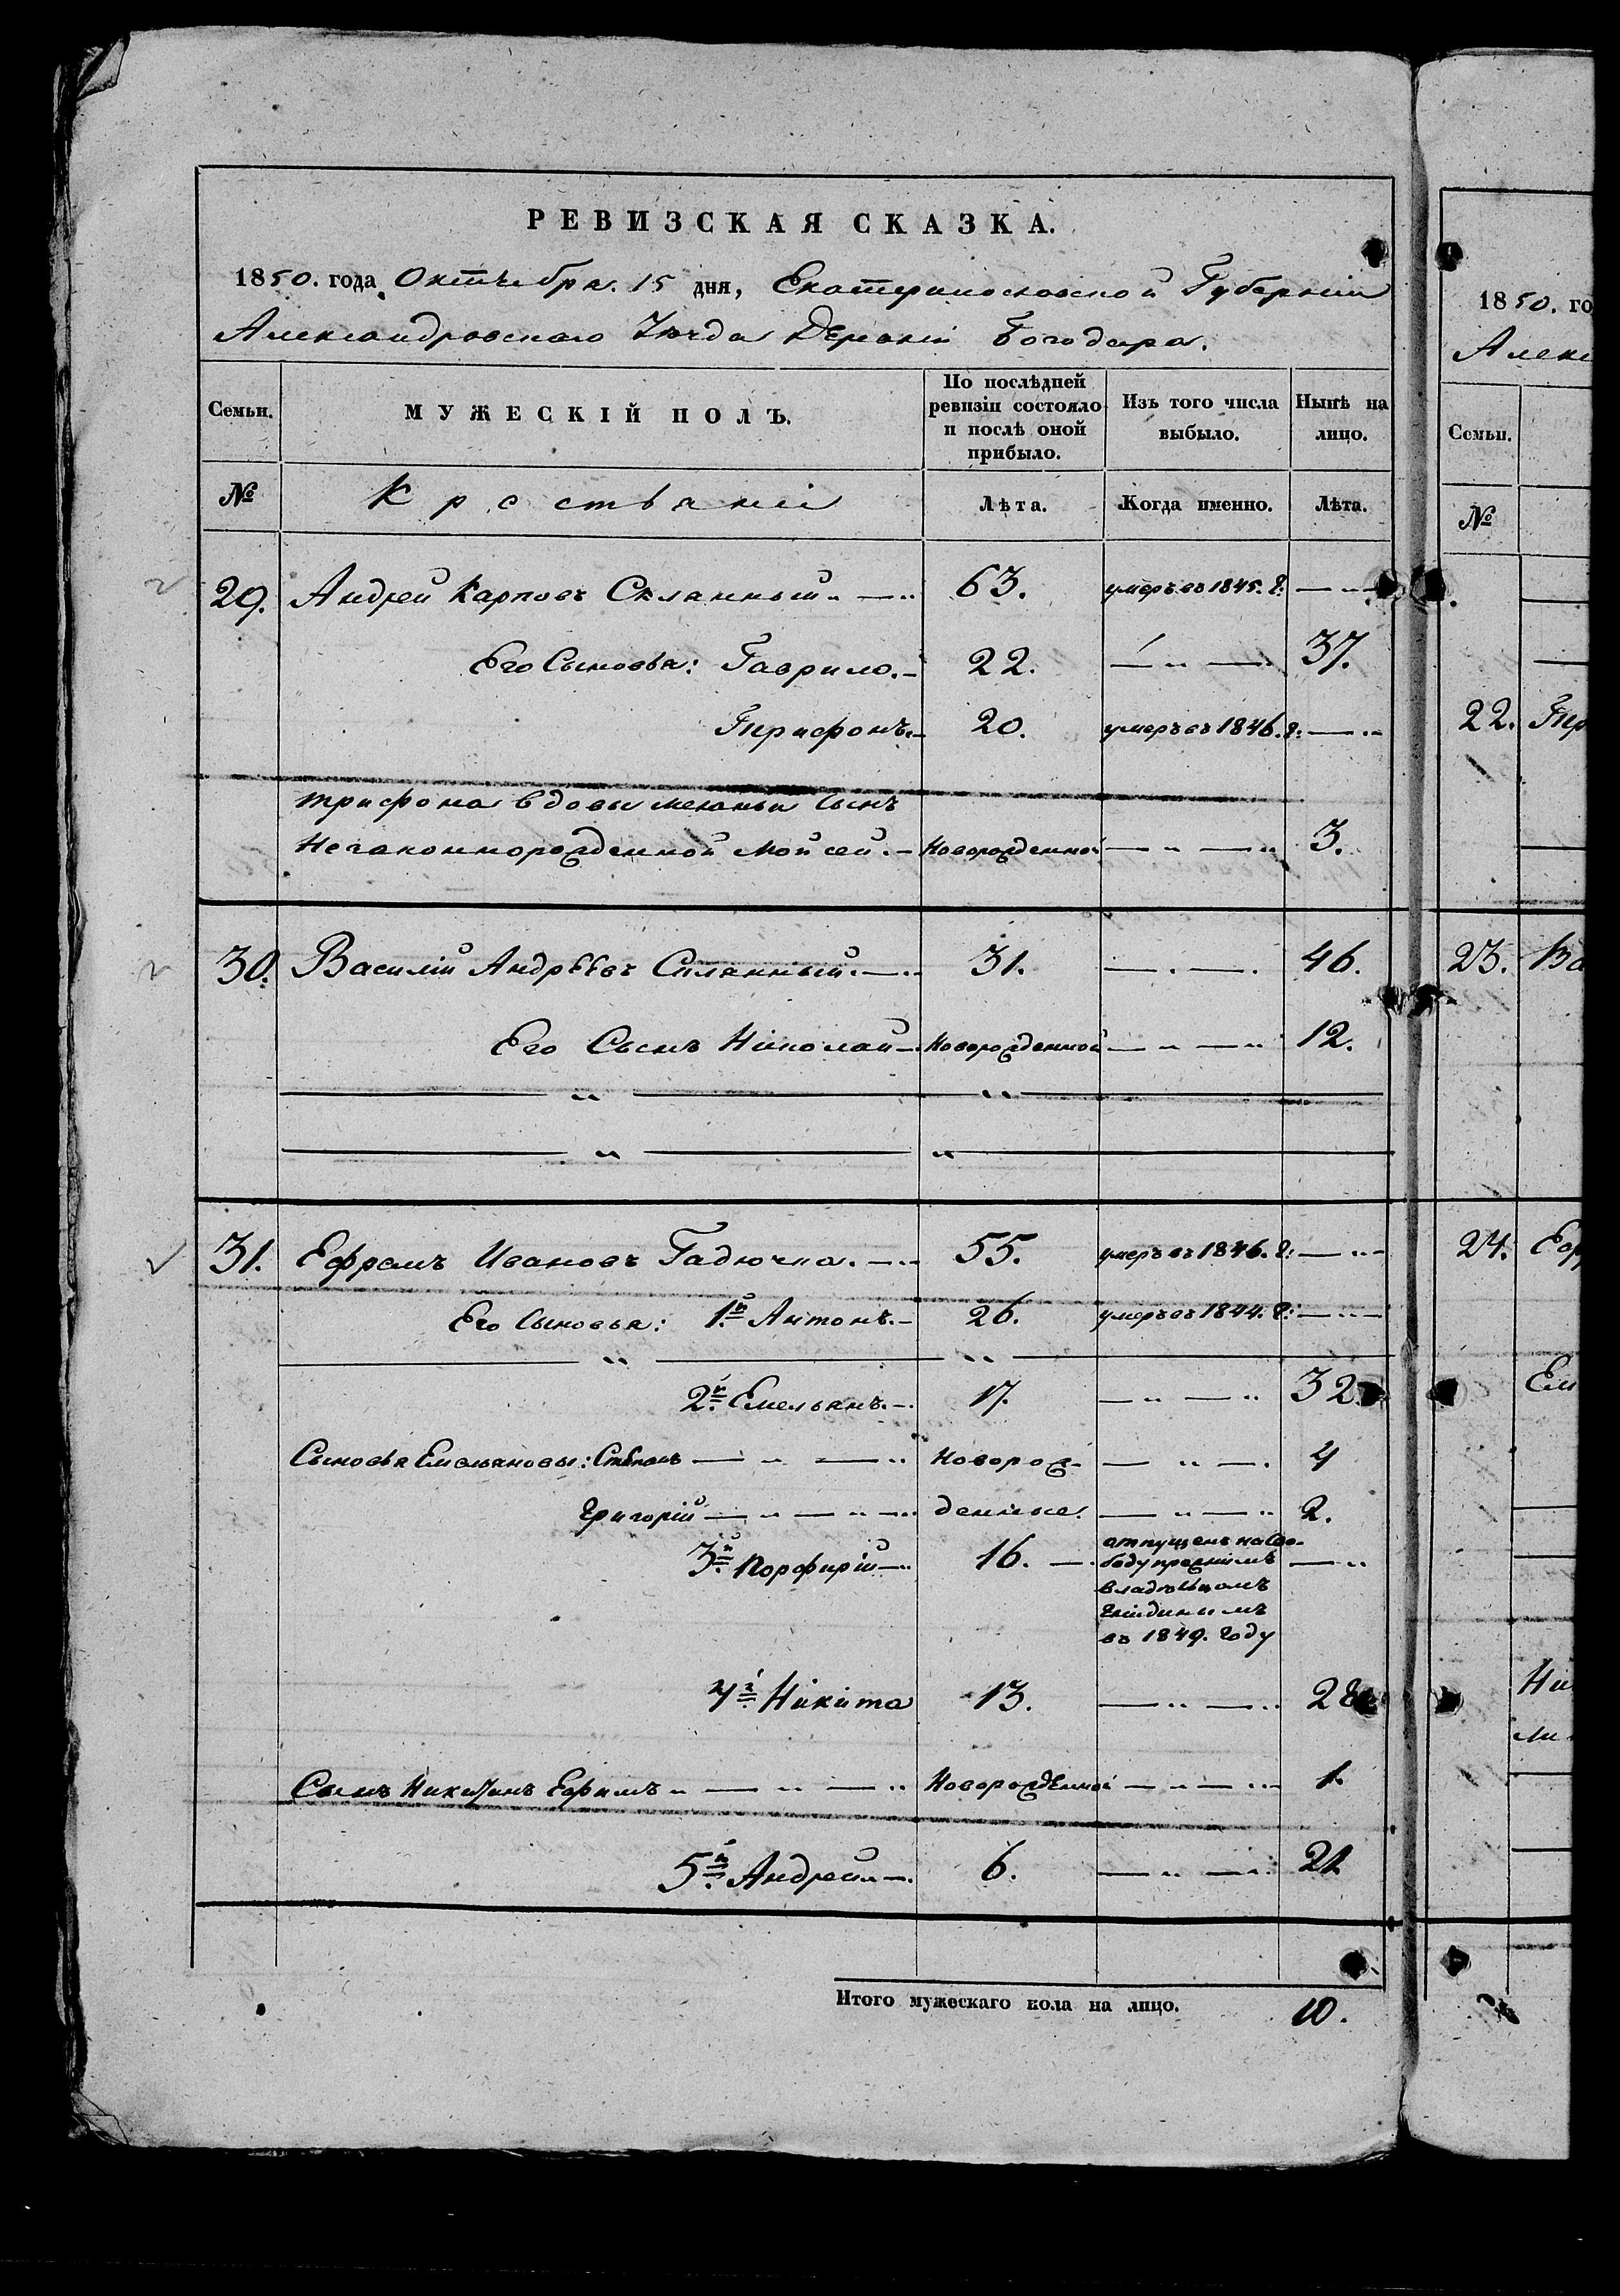 РЕВИЗСКАЯ СКАЗКА.
1850. года Октября. 15 дня, Екатеринославской Губерніи
Александровскаго Уезда Деревни Богодара.
Семьи. МУЖЕСКІЙ ПОЛЪ. По послѣдней ревизіи состояло и послѣ оной прибыло. Изъ того числа выбыло. Нынѣ на лицо.
№ Крестьяніи Лѣта. Когда именно. Лѣта.
29. Андрей Карповъ Склянный 63. умеръ въ 1845. г:
Его Сыновья: Гаврило. 22. 37.
Трифонъ. 20. умеръ въ 1846. г:
трифона вдовы меланьи Сынъ
Незаконнорожденной Мойсей. Новорожденной 3.
30. Василій Андрѣевъ Склянный. 31. 46.
Его Сынъ Николай Новорожденной 12.
31. Ефремъ Ивановъ Гадючка. 55. умеръ въ 1846. г:
Его Сыновья: 1й. Антонъ. 26. умеръ въ 1844. г:
2й. Емельянъ. 17. 32.
Сыновья Емельяновы: Степанъ Новорож- 4
Григорій денные. 2.
3й. Порфирій 16. отпущенъ на Сво-
боду прежнимъ
владѣльцомъ
въ 1849. году
4й Никита 13. 28
Сынъ Никитинъ Ефимъ Новорожденной 1.
5й. Андрей 6. 21
Итого мужескаго пола на лицо. 10.
1850. го
Алекс
Семьи.
№
22. Тр
23. Ва
24. Еф
Ем
Ни